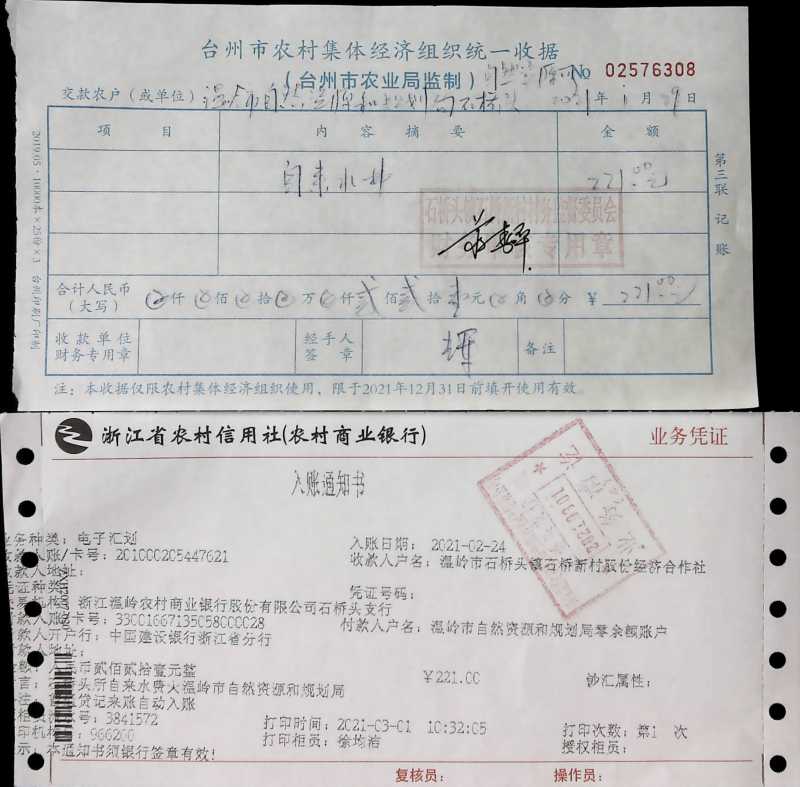 台州市农村集体经济组织统一收据
(台州市农业局监制)
No 02576308
交款农户(或单位) 温岭市自然资源和规划局石桥 2021年1月29日
项目 内容摘要 金额
自来水 221.00元
石桥头镇石桥新村村务监督委员会
专用章
合计人民币(大写) 仟 佰 拾 万 仟 贰佰贰拾壹元 角 分 ¥ 221.00元
收款单位财务专用章 经手人签章 备注
注:本收据仅限农村集体经济组织使用,限于2021年12月31日前填开使用有效。
第三联 记账
2019.05·10000本×25份×3 台州印刷厂印制
浙江省农村信用社(农村商业银行) 业务凭证
入账通知书
业务种类:电子汇划 入账日期:2021-02-24
收款人账/卡号:201000205447621 收款人户名:温岭市石桥头镇石桥新村股份经济合作社
收款人地址:
凭证种类: 凭证号码:
机构:浙江温岭农村商业银行股份有限公司石桥头支行
付款人账/卡号:33001667135058000028 付款人户名:温岭市自然资源和规划局零余额账户
付款人开户行:中国建设银行浙江省分行
付款人地址:
金额:人民币贰佰贰拾壹元整 ¥221.00 钞汇属性:
头所自来水费大温岭市自然资源和规划局
贷记来账自动入账
号:3841572 打印时间:2021-03-01 10:32:05 打印次数:第1 次
打印机构:966200 打印柜员:徐均洁 授权柜员:
提示:本通知书须银行签章有效!
复核员: 操作员: